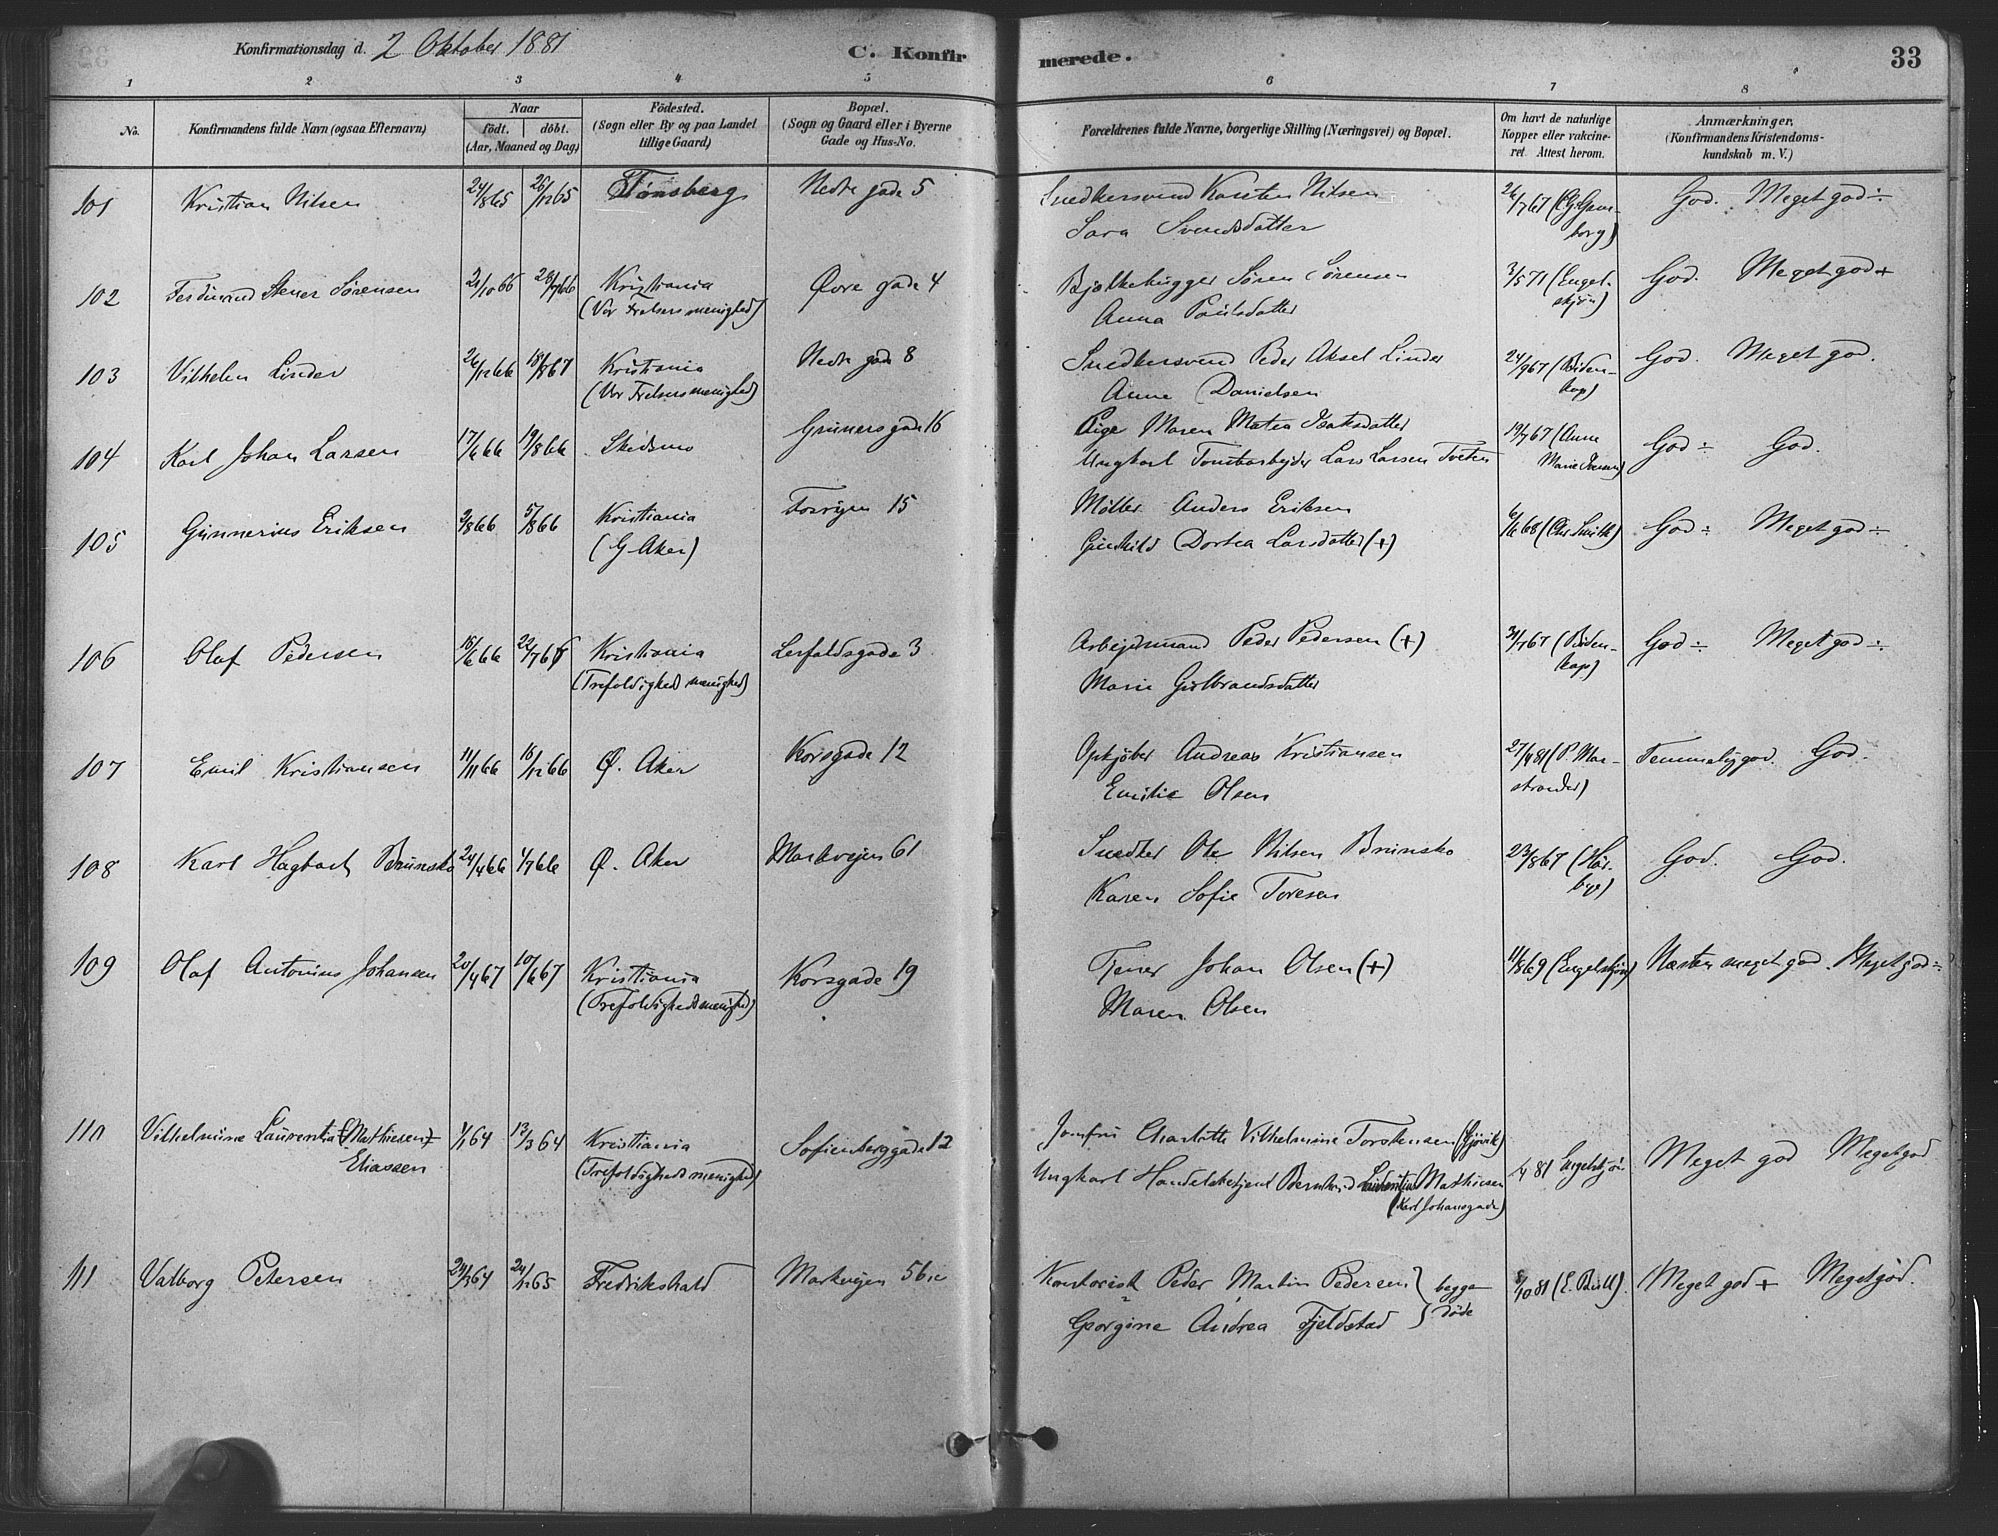 Konfirmationsdag d. 2 Oktober 1881 C. Konfirmerede. 33
1 2 3 4 5 6 7 8
No. Konfirmandens fulde Navn (ogsaa Efternavn) Naar födt. döbt. (Aar, Maaned og Dag) Födested. (Sogn eller By og paa Landet tillige Gaard) Bopæl. (Sogn og Gaard eller i Byerne Gade og Hus-No. Forældrenes fulde Navne, borgerlige Stilling (Næringsvei) og Bopæl. Om havt de naturlige Kopper eller vakcineret. Attest herom. Anmærkninger. (Konfirmandens Kristendomskundskab m. V.)
101 Kristian Nilsen 24/8 65 26/12 65 Tønsberg Nedre gade 5 Snedkersvend Karsten Nilsen 26/7 67 God. Meget god ÷
Sara Svendsdatter
102 Ferdinand Stener Sørensen 21/10 66 Kristiania Øvre gade 4 Bjælkehugger Søren Sørensen 3/5 71 (Engel- God. Meget god +
(Vor Frelsers menighed) Anna Paulsdatter skjøn)
103 Vilhelm Linder 26/12 66 18/8 67 Kristiania Nedre gade 8 Snedkersvend Peder Aksel Linder 24/9 67 (Biden- God. Meget god.
(Vor Frelsers menighed) Anne Danielsen kap)
104 Karl Johan Larsen 17/6 66 19/8 66 Skedsmo Grünersgade 16 Pige Maren Matea Isaksdatter 19/7 67 (Anne God ÷ God.
Ungkarl Tomtearbejder Lars Larsen Tveten Marie Iversen)
105 Gunnerius Eriksen 2/8 66 5/8 66 Kristiania Fossvejen 15 Møller Anders Eriksen 6/6 68 (Chr. Smith) God ÷ Meget god ÷
(G. Aker) Gunhild Dortea Larsdatter (+)
106 Olaf Pedersen 16/6 66 22/7 66 Kristiania Lerfaldsgade 3 Arbejdsmand Peder Pedersen (+) 31/7 67 (Biden- God ÷ Meget god ÷
(Trefoldighedsmenighed) Marie Gulbrandsdatter kap)
107 Emil Kristiansen 11/11 66 16/12 66 Ø. Aker Korsgade 12 Opkjøber Andreas Kristiansen 27/4 81 (P. Mar- Temmelig god. God.
Emilie Olsen strander)
108 Karl Hagbart Brunsko 24/4 66 1/7 66 Ø. Aker Markvejen 61 Snedker Ole Nilsen Brunsko 23/8 67 (Hør- God. God.
Karen Sofie Toresen bye)
109 Olaf Antonius Johansen 20/4 67 10/6 67 Kristiania Korsgade 19 Tjener Johan Olsen (+) 11/8 69 (Engelskjøn) Næsten meget god. Meget god ÷
(Trefoldighedsmenighed) Maren Olsen
110 Vilhelmine Laurentia (Mathiesen) 1/1 64 13/3 64 Kristiania Sofienberggade 12 Jomfru Charlotte Vilhelmine Torstensen (Gjøvik) /4 81 Engelskjøn Meget god Meget god
Eliassen (Trefoldighedsmenighed) Ungkarl Handelsbetjent Bernhard Laurentius Mathiesen
(Karl Johansgade)
111 Valborg Petersen 24/3 64 Fredrikshald Markvejen 56 Kontorist Peder Martin Pedersen } begge 5/10 81 Meget god + Meget god.
Georgine Andrea Fjeldstad } døde